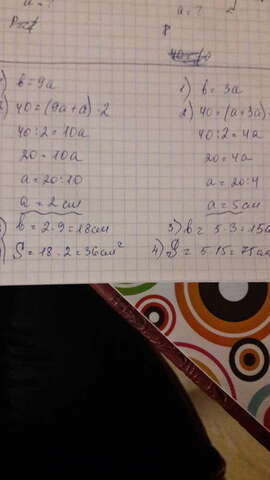 a = ?
a = ?
P
1) b = 9a
2) 40 = (9a + a) · 2
40 : 2 = 10a
20 = 10a
a = 20 : 10
a = 2 см
b = 2 · 9 = 18 см
S = 18 · 2 = 36 см²
1) b = 3a
2) 40 = (a + 3a) ·
40 : 2 = 4a
20 = 4a
a = 20 : 4
a = 5 см
3) b = 5 · 3 = 15
4) S = 5 · 15 = 75